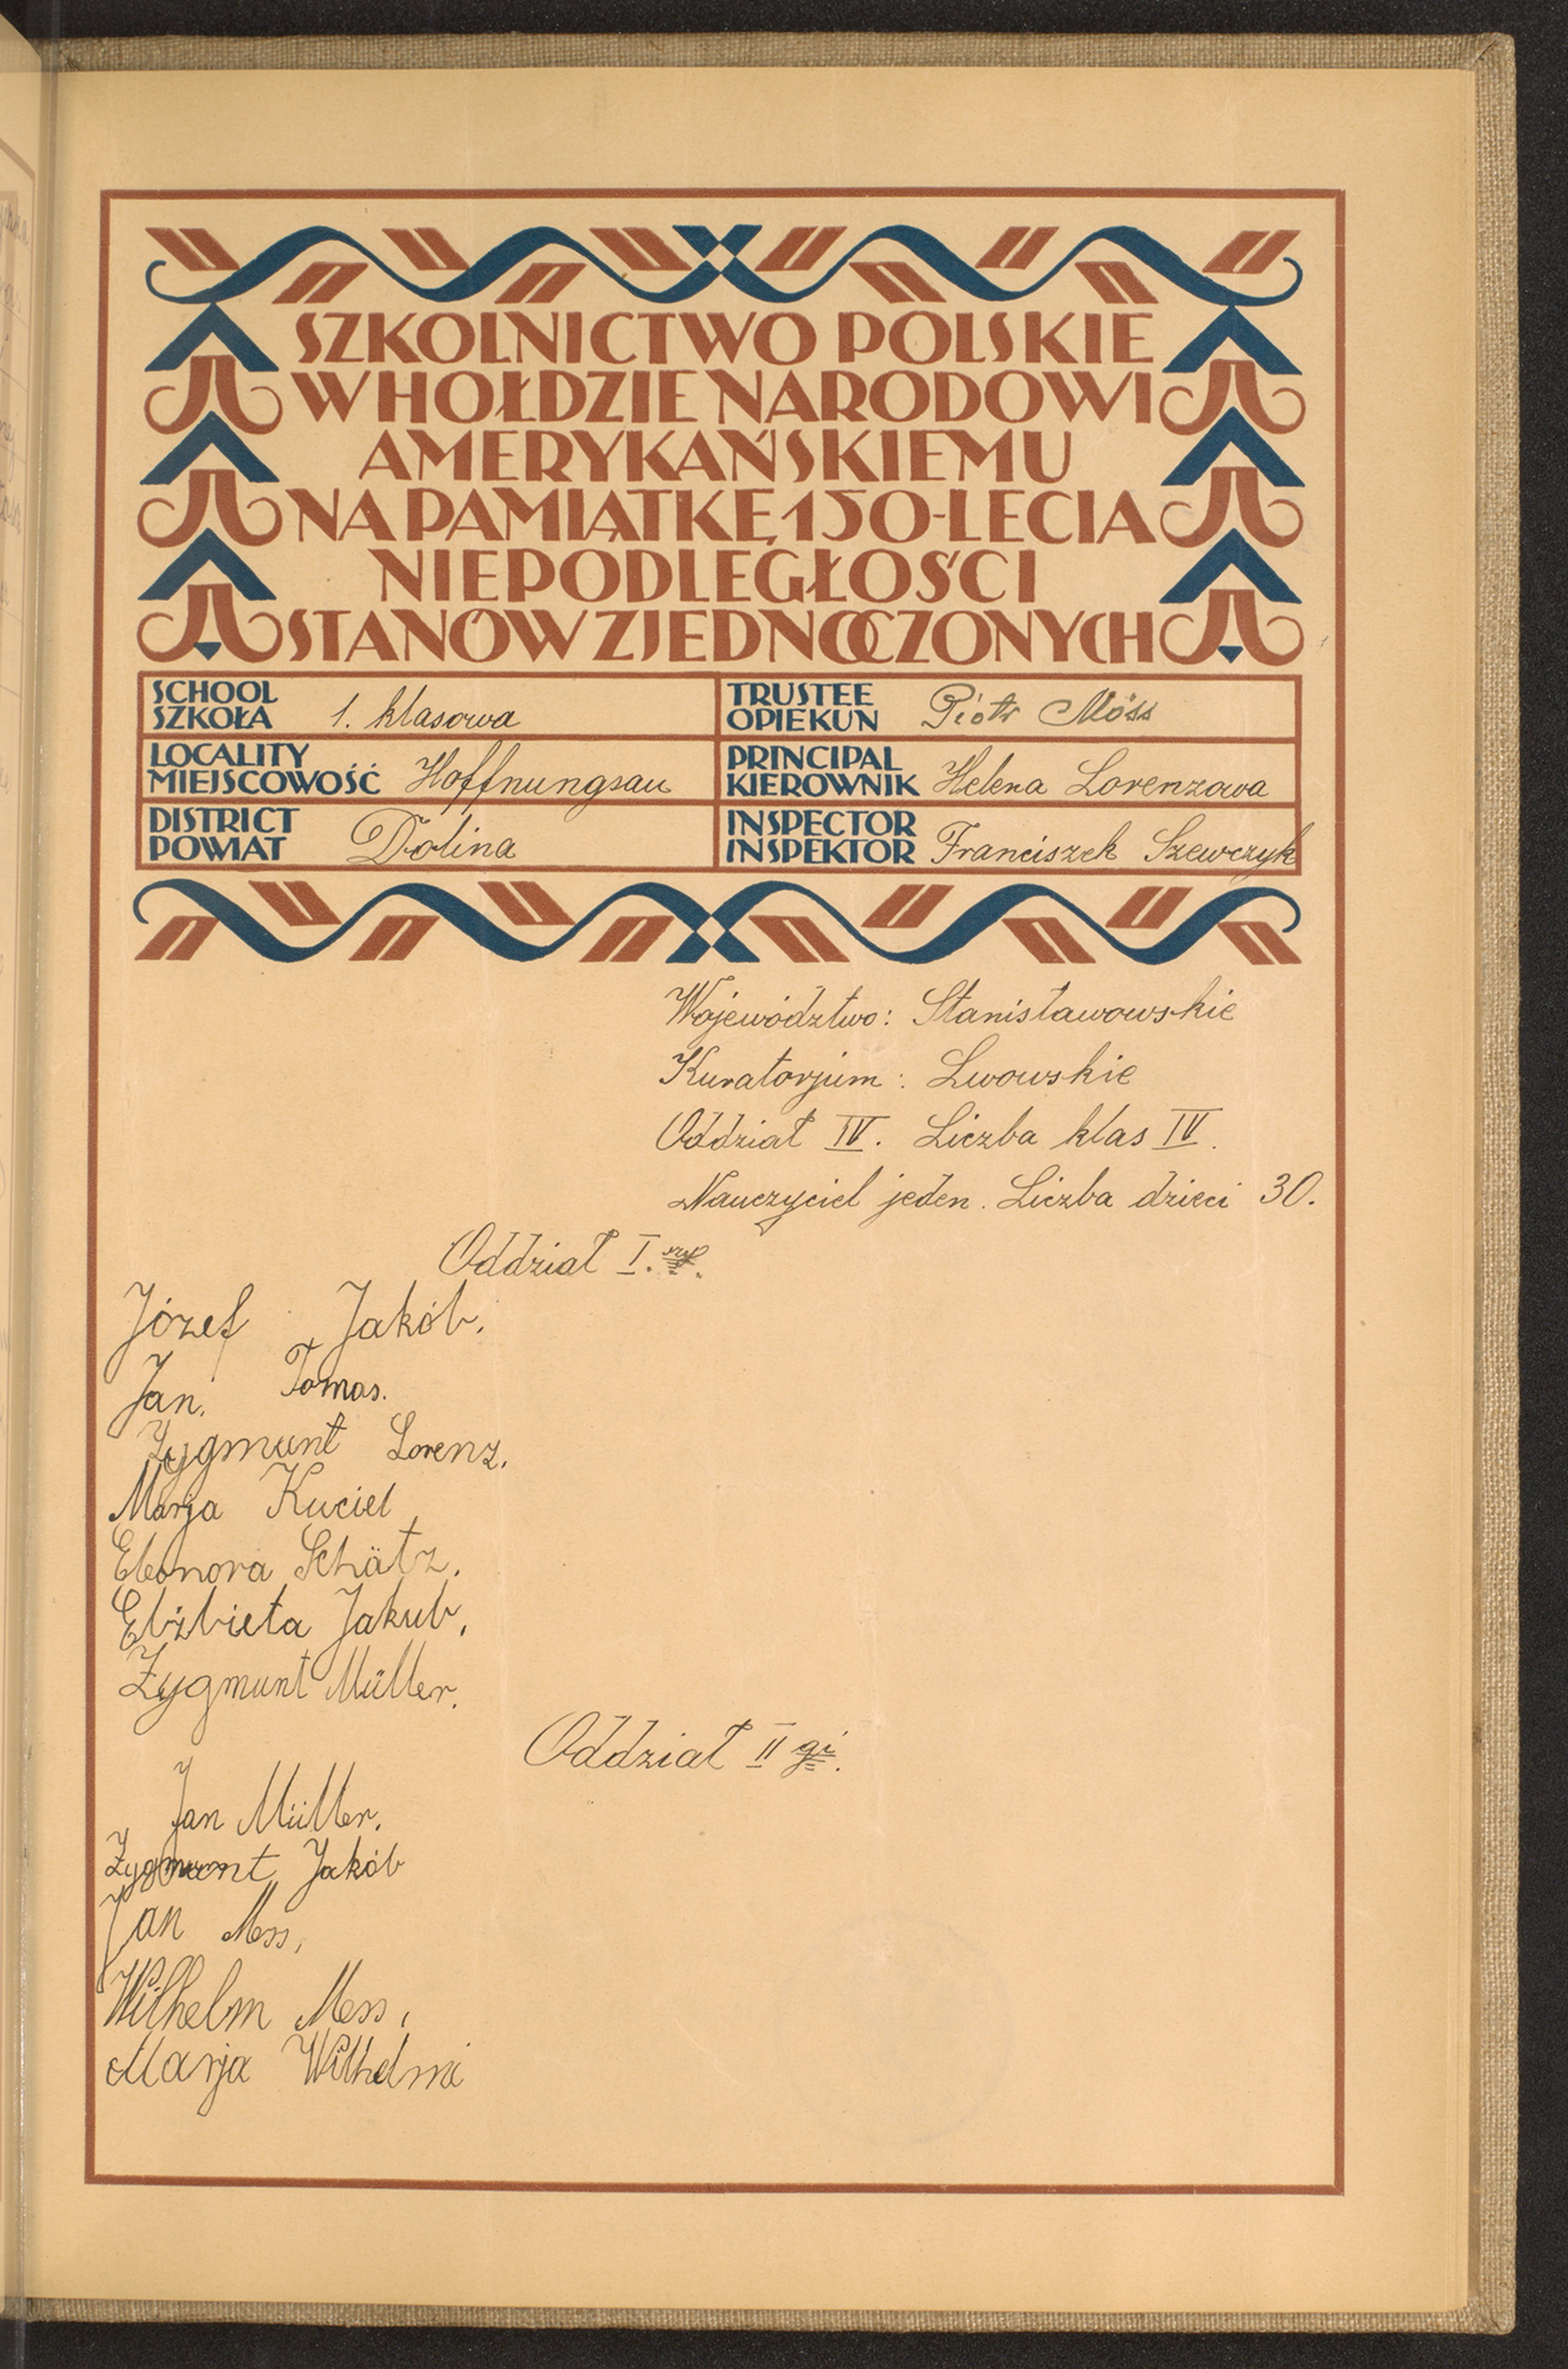 SZKOLNICTWO POLSKIE
W HOŁDZIE NARODOWI
AMERYKAŃSKIEMU
NA PAMIĄTKĘ 150-LECIA
NIEPODLEGŁOŚCI
STANÓW ZJEDNOCZONYCH
SCHOOL
SZKOŁA 1. klasowa
TRUSTEE
OPIEKUN Piotr Möss
LOCALITY
MIEJSCOWOŚĆ Hoffnungsau
PRINCIPAL
KIEROWNIK Helena Lorenzowa
DISTRICT
POWIAT Dolina
INSPECTOR
INSPEKTOR Franciszek Szewczyk
Województwo: Stanisławowskie
Kuratorjum: Lwowskie
Oddział IV. Liczba klas IV.
Nauczyciel jeden. Liczba dzieci 30.
Oddział I.
Józef Jakób.
Jan. Tomas.
Zygmunt Lorenz.
Marja Kuciel
Eleonora Schätz.
Elżbieta Jakub.
Zygmunt Müller.
Oddział II gi.
Jan Müller.
Zygmunt Jakób
Jan Mess,
Wilhelm Mess,
Marja Wilhelmi